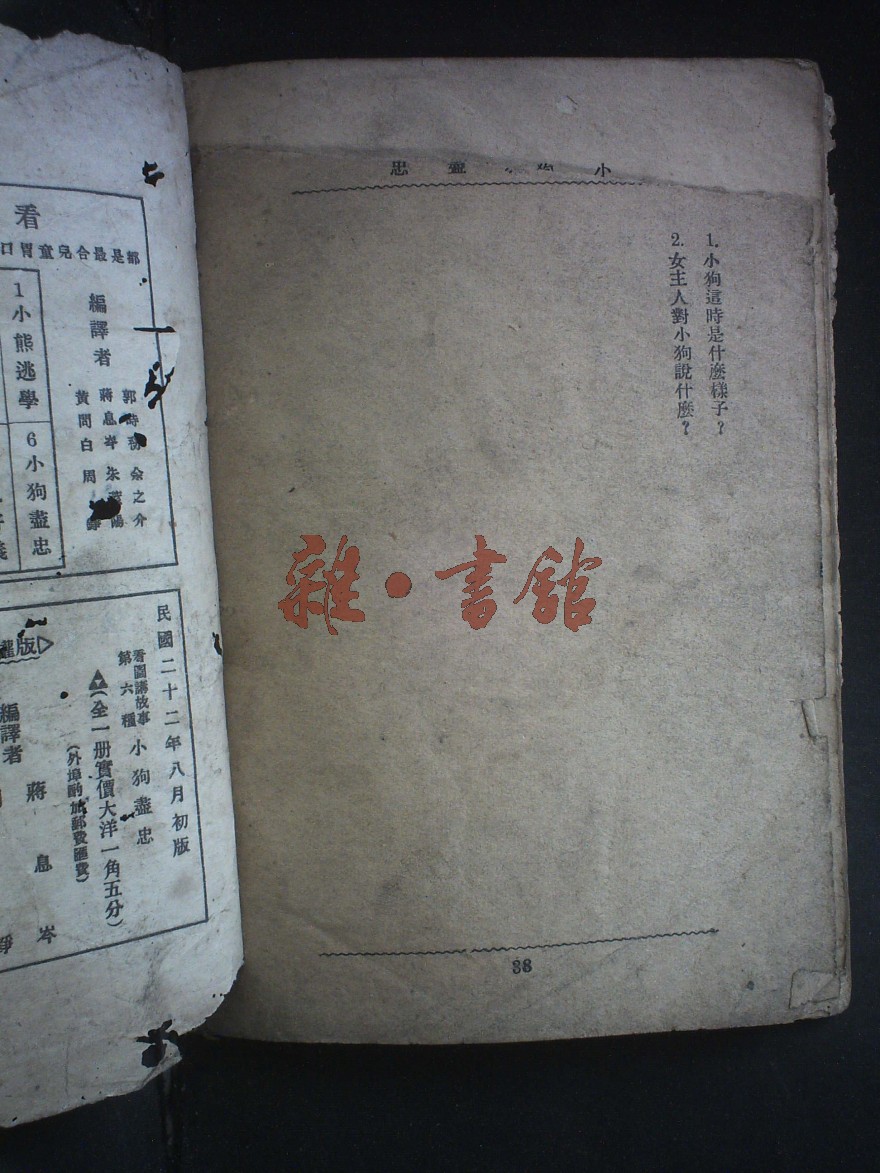 小狗盡忠
1.小狗這時是什麼樣子？
2.女主人對小狗說什麼？
38
雜·書館
看
都是最合兒童胃口
編譯者
郭時 余之介
蔣息岑 朱
黃問白 周
1小熊逃學
6小狗盡忠
民國二十二年八月初版
看圖講故事
第六種
小狗盡忠
(全一册實價大洋一角五分)
(外埠酌加郵費匯費)
版
編譯者
蔣息岑